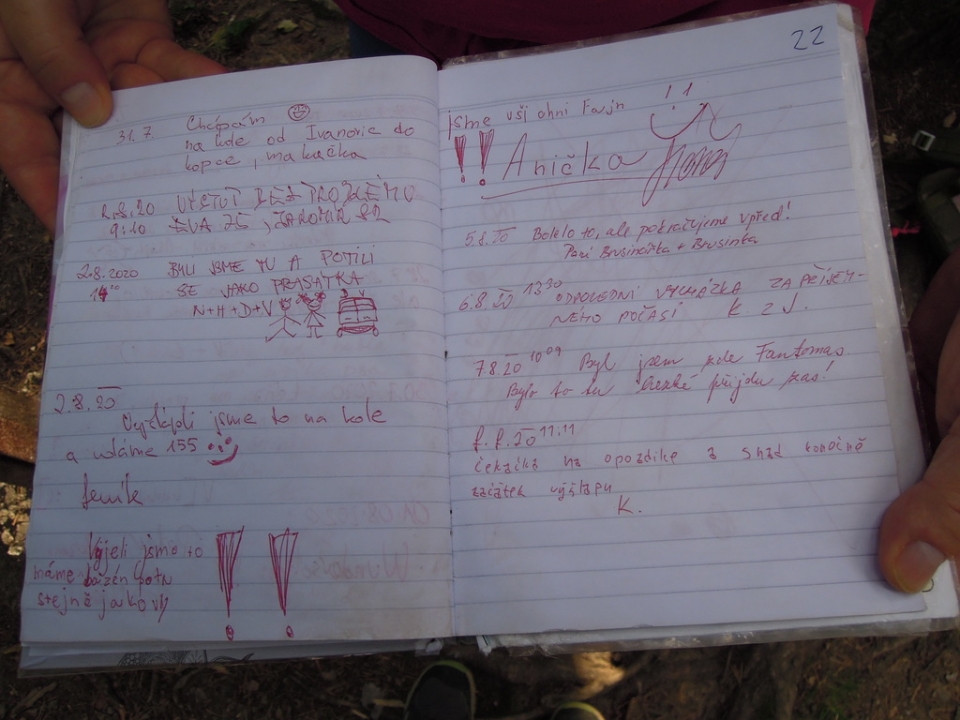 31.7. Chápám
na kole od Ivanovic do
kopce, makačka
2.8.20
9:10 EVA 75, JAROMIR 82
BEZ PROBLÉMU
2.8.2020 BYLI JSME TU A POTILI
14⁰⁰ SE JAKO PRASÁTKA
N+H+D+V
2.8.20
jsme to na kole
a udáme 155
Vyjeli jsme to
máme bazén potu
stejně jako vy
22
jsme všichni Fajn
!! Anička
5.8.20 Bolelo to, ale pokračujeme vpřed!
Paní Brusinka + Brusinka
6.8.20 13³⁰ ODPOLEDNÍ VYCHÁZKA ZA PŘÍJEM-
NÉHO POČASÍ K 2 J.
7.8.20 10⁰⁹ Byl jsem zde Fantomas
Bylo to tu hezké přijdu zas!
8.8.20 11.11
čekačka na opozdilce a snad konečně
začátek výšlapu
K.